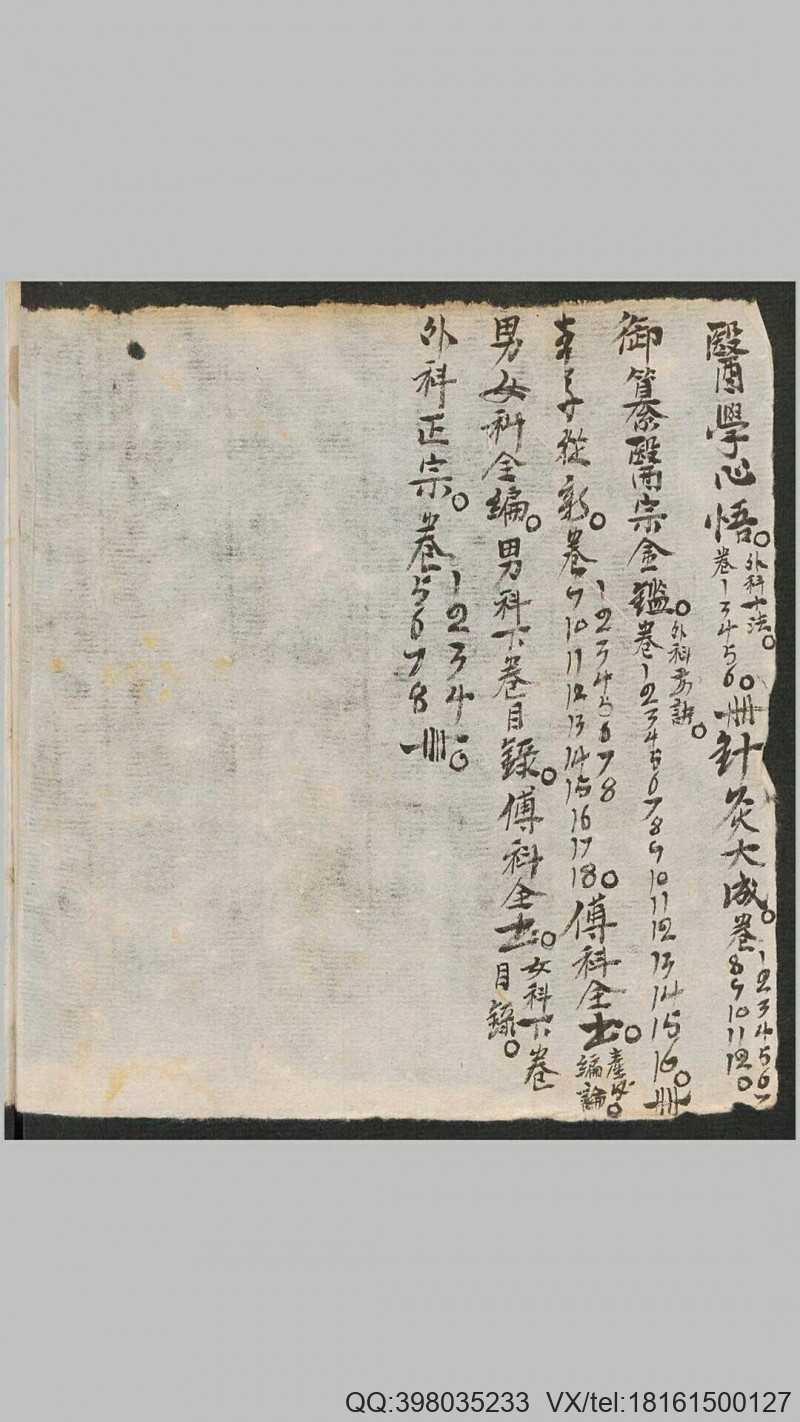 醫學心悟。外科十法。卷1 2 3 4 5 6。冊 針灸大成。卷1 2 3 4 5 6 7 8 9 10 11 12。
御纂醫宗金鑑。外科要訣。卷1 2 3 4 5 6 7 8 9 10 11 12 13 14 15 16。冊
從新。卷1 2 3 4 5 6 7 8 9 10 11 12 13 14 15 16 17 18。傅科全。產後。編論
男女科全編。男科下卷目錄。傅科全。女科下卷目錄。
外科正宗。卷1 2 3 4 5 6 7 8 冊。
QQ:398035233 VX/tel:18161500127